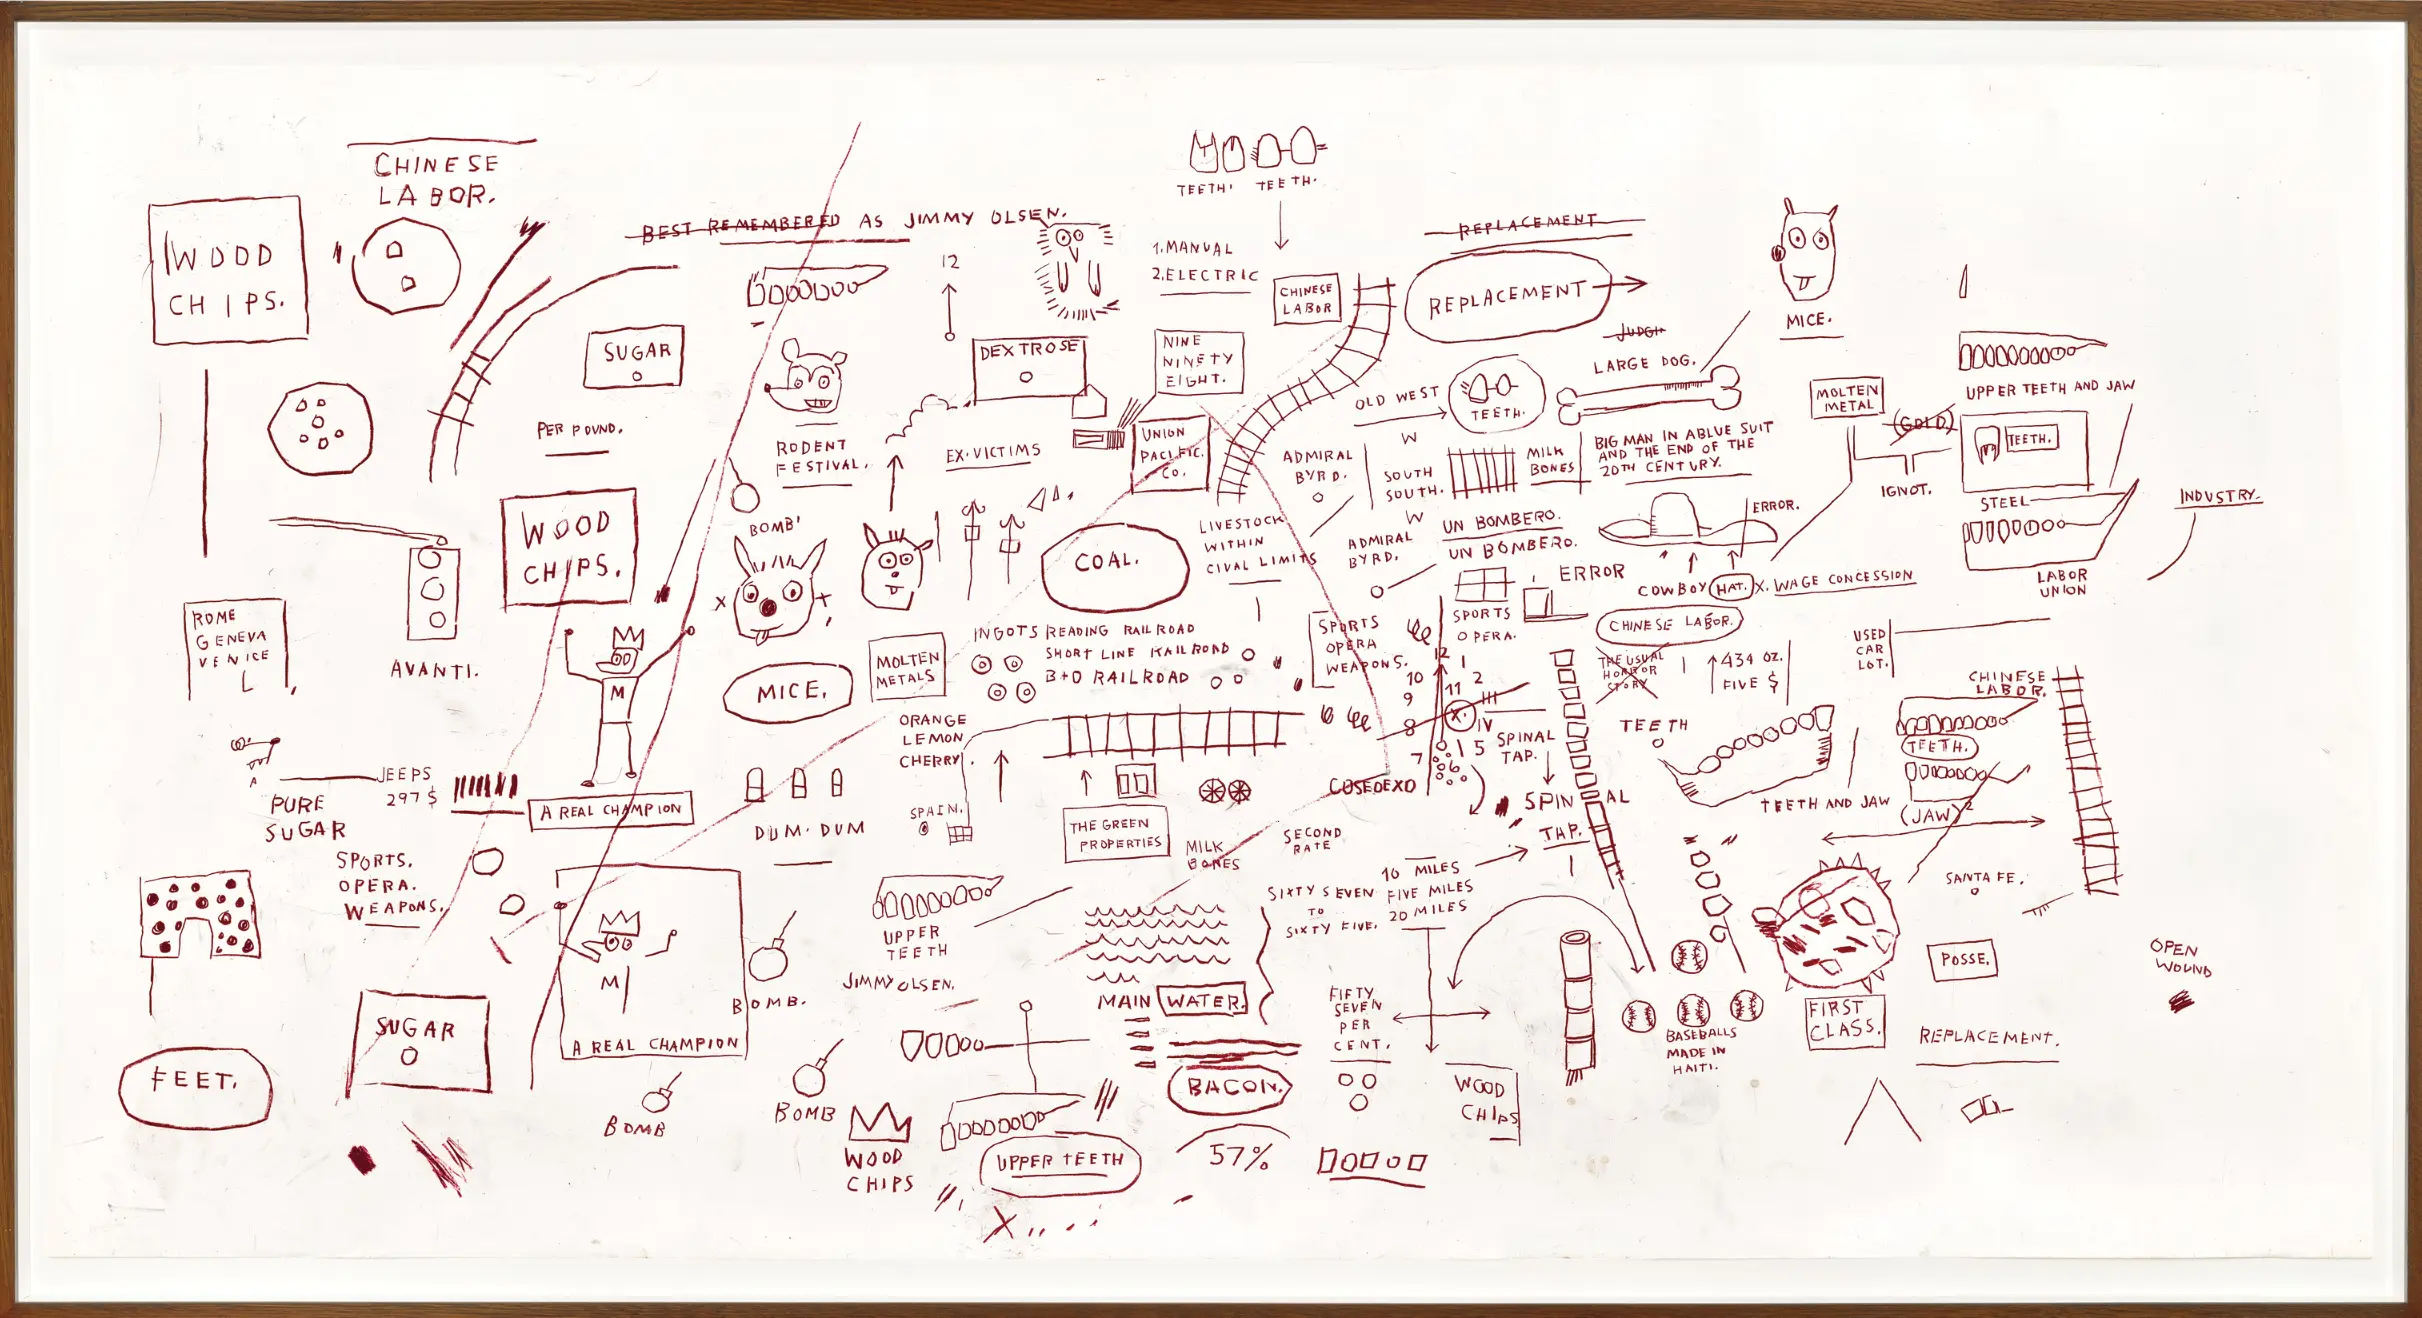 CHINESE
LABOR.
WOOD
CHIPS.
BEST REMEMBERED AS JIMMY OLSEN.
TEETH. TEETH.
1. MANUAL
2. ELECTRIC
CHINESE
LABOR
REPLACEMENT
REPLACEMENT
MICE.
SUGAR
PER POUND.
12
RODENT
FESTIVAL.
DEXTROSE
EX-VICTIMS
NINE
NINETY
EIGHT.
UNION
PACIFIC.
CO.
OLD WEST
TEETH.
LARGE DOG.
W
ADMIRAL
BYRD.
SOUTH
SOUTH.
W
MILK
BONES
BIG MAN IN A BLUE SUIT
AND THE END OF THE
20TH CENTURY.
MOLTEN
METAL
(GOLD)
IGNOT.
UPPER TEETH AND JAW
TEETH.
STEEL
INDUSTRY.
LABOR
UNION
WOOD
CHIPS.
BOMB'
COAL.
LIVESTOCK
WITHIN
CIVAL LIMITS
ADMIRAL
BYRD.
UN BOMBERO.
UN BOMBERO.
ERROR
ERROR.
COWBOY HAT. X. WAGE CONCESSION
ROME
GENEVA
VENICE
L
AVANTI.
M
X
MICE.
MOLTEN
METALS
INGOTS READING RAILROAD
SHORT LINE RAILROAD
B+O RAILROAD
SPORTS
OPERA
WEAPONS.
SPORTS
OPERA.
CHINESE LABOR.
THE USUAL
HORROR
STORY
434 OZ.
FIVE $
USED
CAR
LOT.
CHINESE
LABOR.
TEETH.
(JAW)²
JEEPS
297 $
PURE
SUGAR
A REAL CHAMPION
DUM-DUM
ORANGE
LEMON
CHERRY.
SPAIN.
THE GREEN
PROPERTIES
MILK
BONES
SECOND
RATE
12
1
2
III
IV
5
6
7
8
9
10
11
X.
COSEDEXO
SPINAL
TAP.
SPINAL
TAP.
TEETH
TEETH AND JAW
SPORTS.
OPERA.
WEAPONS.
M
A REAL CHAMPION
BOMB.
UPPER
TEETH
JIMMY OLSEN.
MAIN WATER.
SIXTY SEVEN
TO
SIXTY FIVE.
10 MILES
FIVE MILES
20 MILES
FIFTY
SEVEN
PER
CENT.
SANTA FE.
POSSE.
OPEN
WOUND
FIRST
CLASS.
REPLACEMENT.
BASEBALLS
MADE IN
HAITI.
SUGAR
FEET.
BOMB
BOMB
WOOD
CHIPS
UPPER TEETH
BACON.
57%
WOOD
CHIPS
X